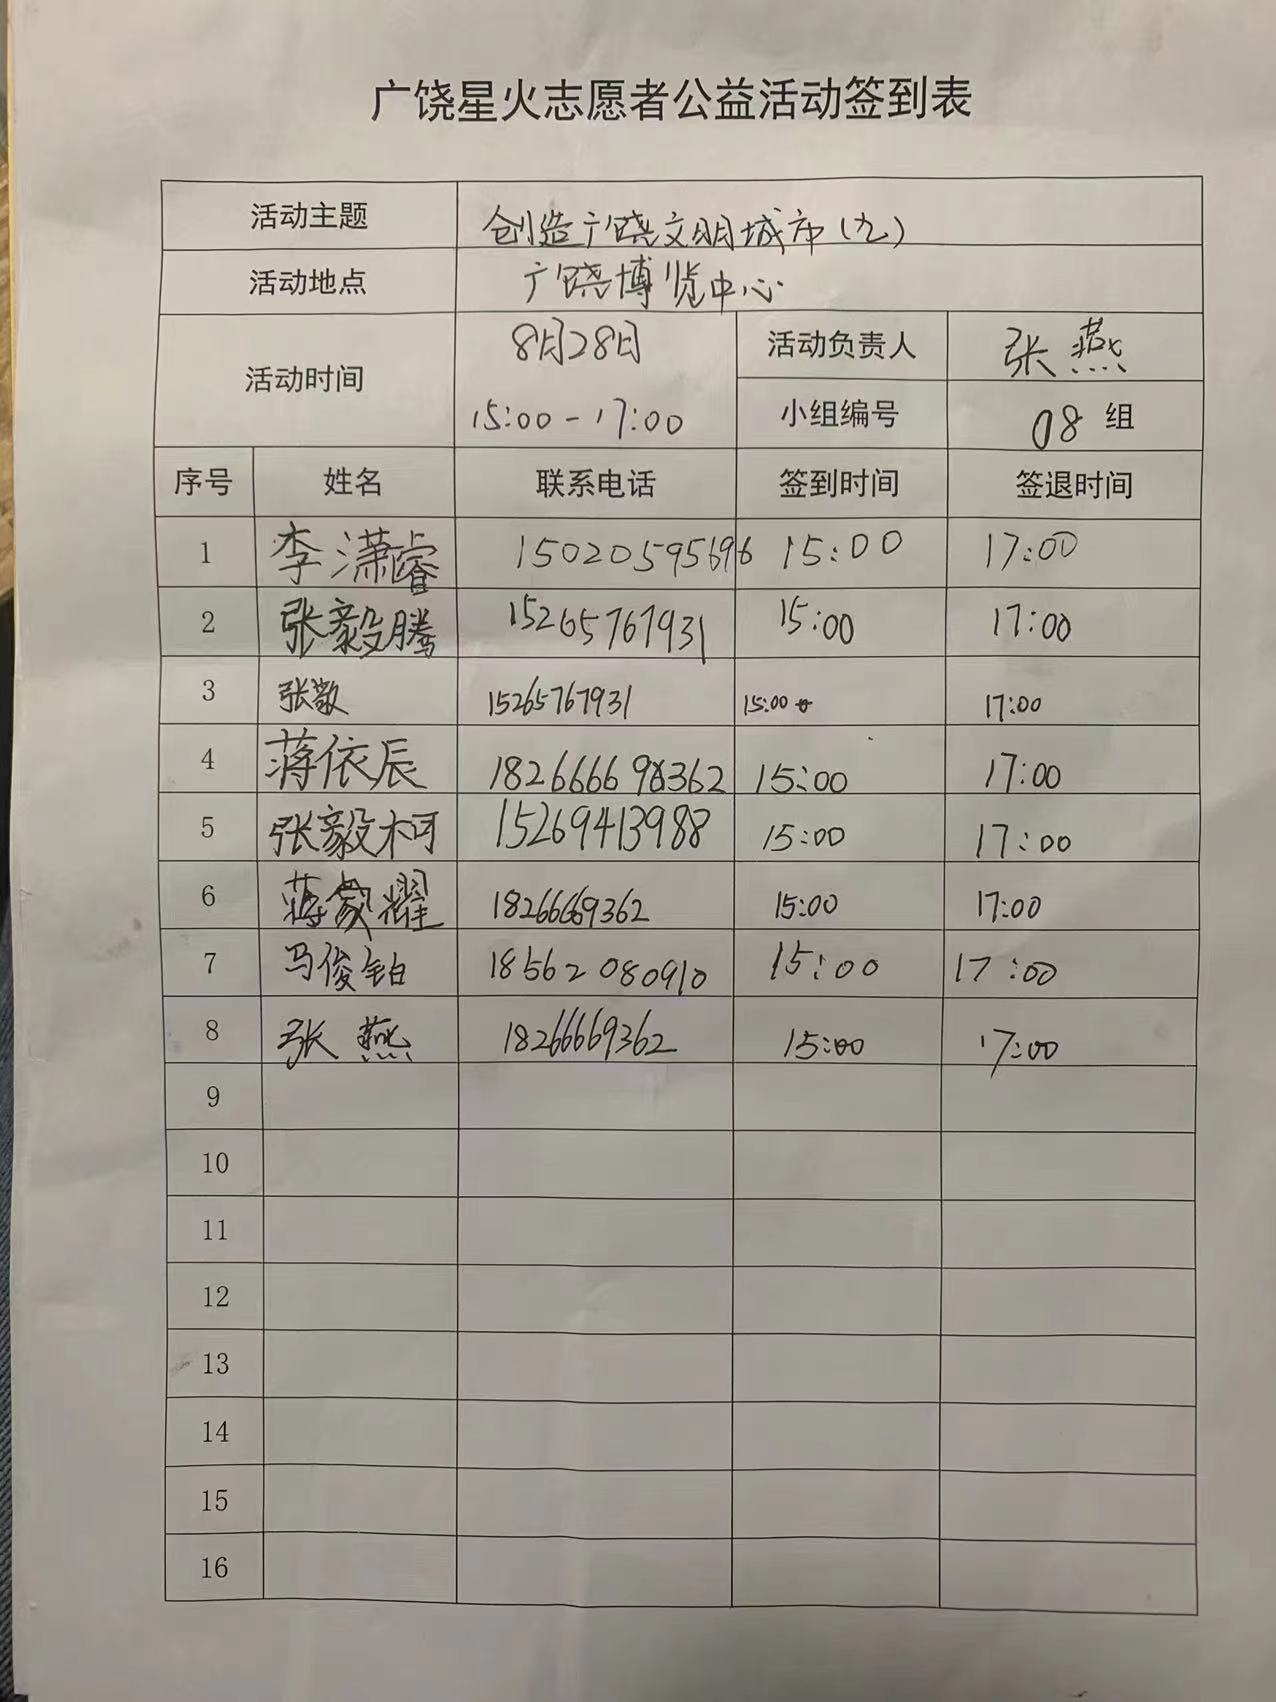 广饶星火志愿者公益活动签到表
活动主题 创造广饶文明城市(九)
活动地点 广饶博览中心
活动时间 8月28日 15:00-17:00 活动负责人 张燕
小组编号 08 组
序号 姓名 联系电话 签到时间 签退时间
1 李潇睿 15020595696 15:00 17:00
2 张毅腾 15265767931 15:00 17:00
3 张敬 15265767931 15:00 17:00
4 蒋依辰 18266669362 15:00 17:00
5 张毅柯 15269413988 15:00 17:00
6 18266669362 15:00 17:00
7 马俊铂 18562080910 15:00 17:00
8 张燕 18266669362 15:00 17:00
9
10
11
12
13
14
15
16